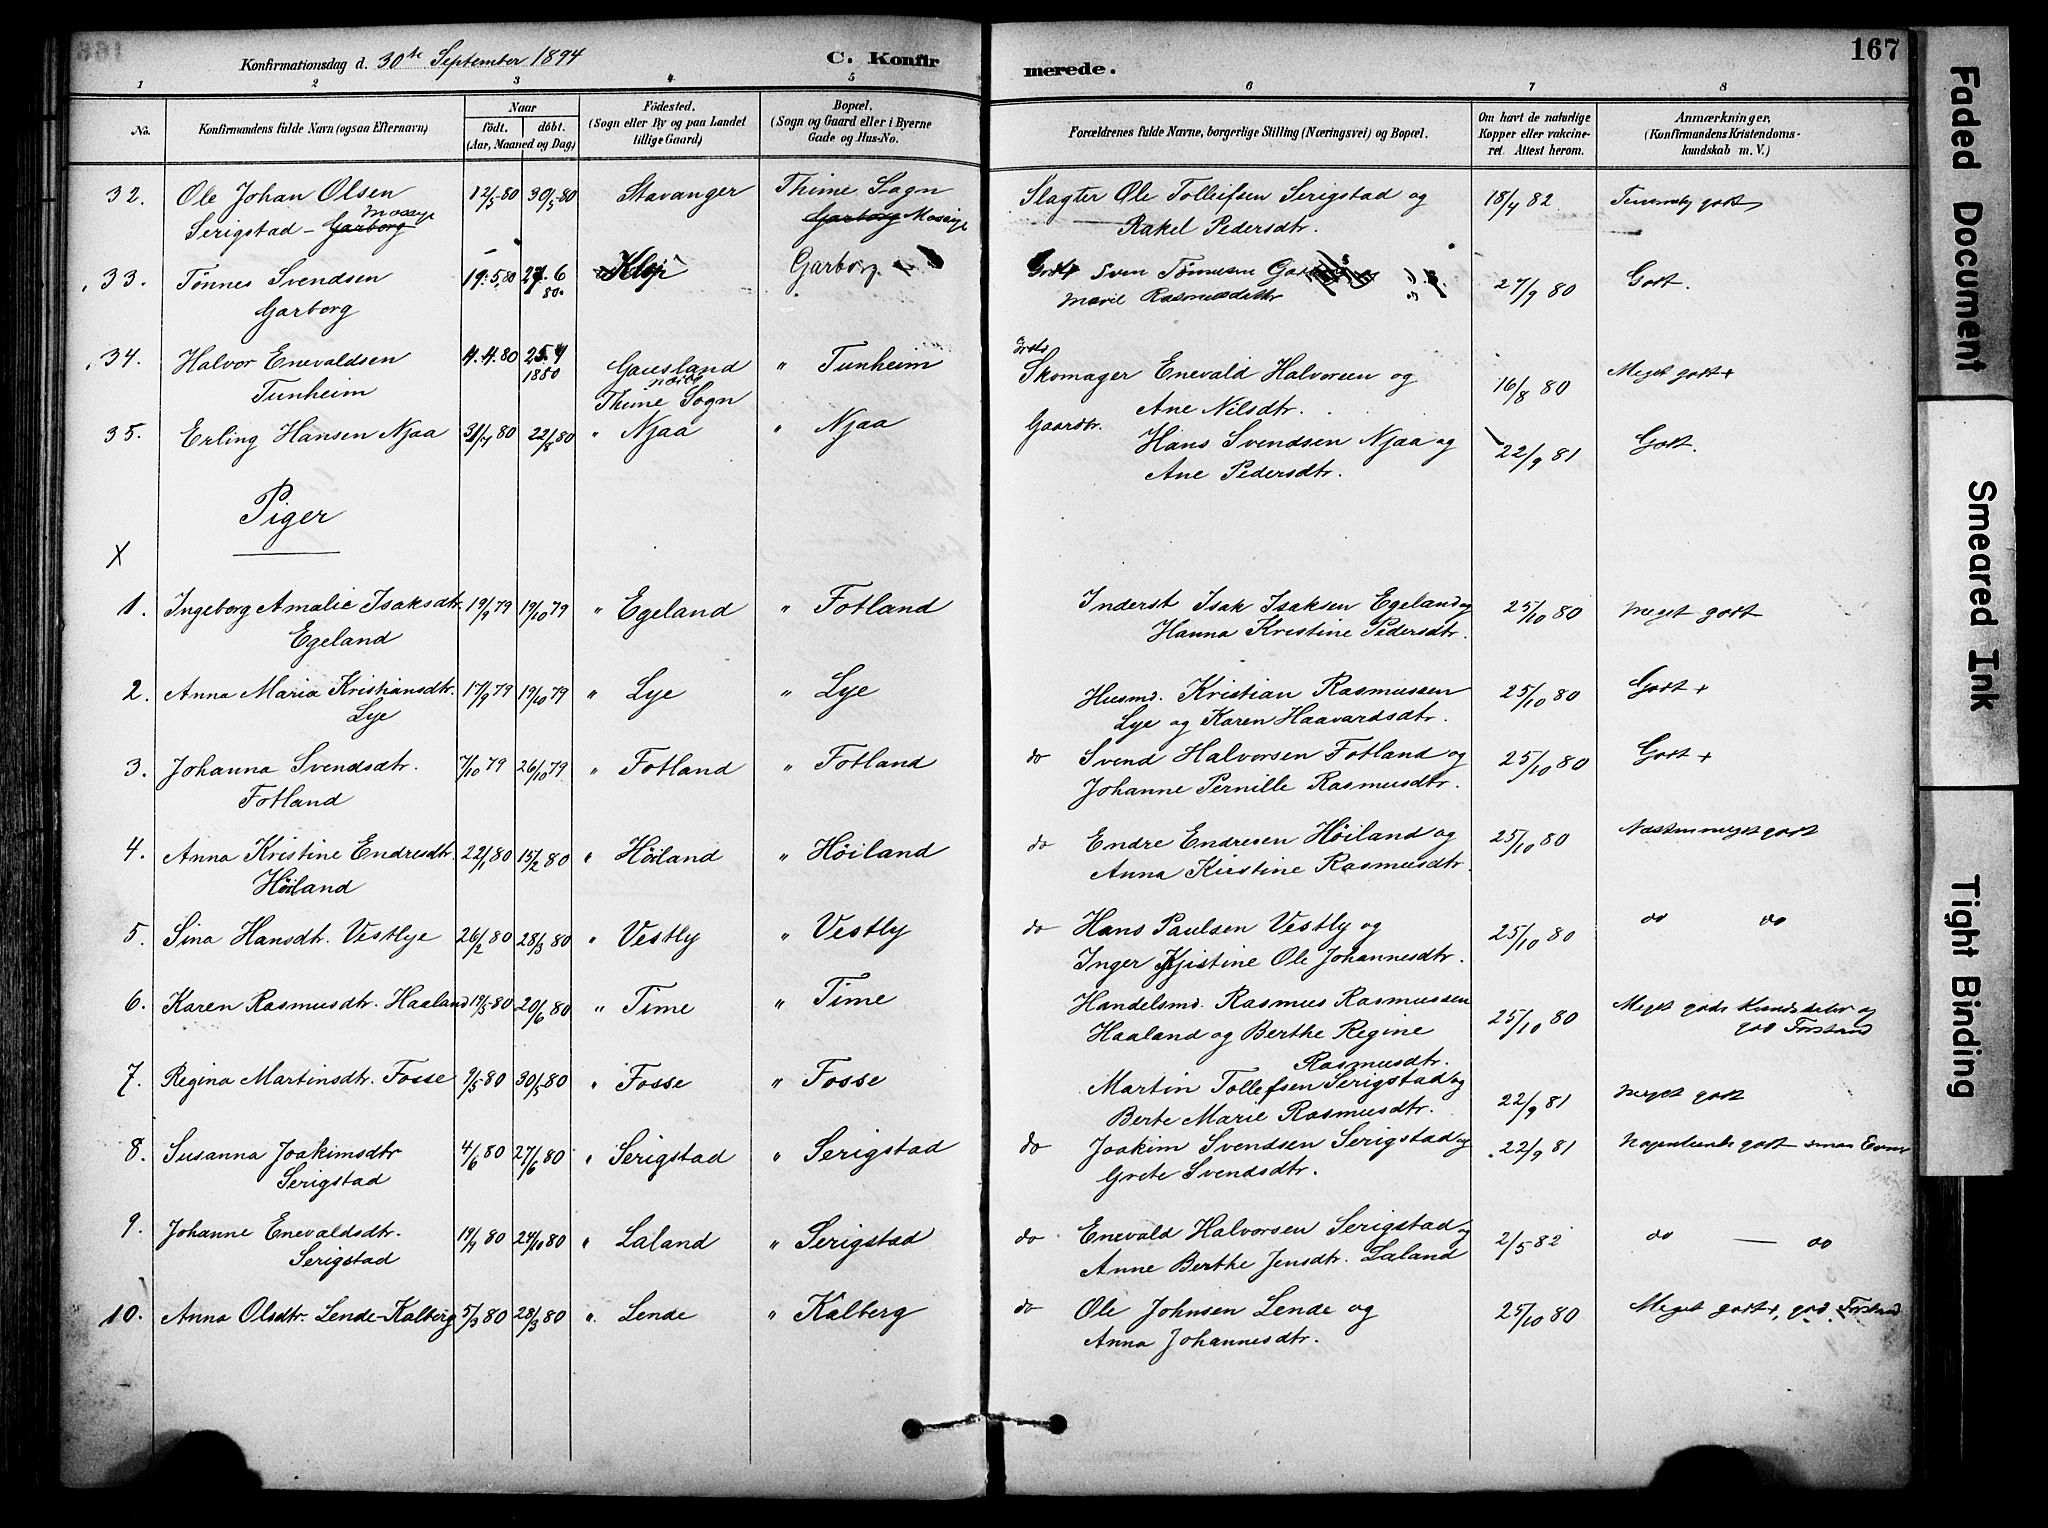 Konfirmationsdag d. 30te September 1894 C. Konfirmerede. 167
1 2 3 4 5 6 7 8
No.
Konfirmandens fulde Navn (ogsaa Efternavn)
Naar
födt. döbt.
(Aar, Maaned og Dag)
Födested.
(Sogn eller By og paa Landet
tillige Gaard)
Bopæl.
(Sogn og Gaard eller i Byerne
Gade og Hus-No.
Forældrenes fulde Navne, borgerlige Stilling (Næringsvei) og Bopæl.
Om havt de naturlige
Kopper eller vakcine-
ret. Attest herom.
Anmærkninger,
(Konfirmandens Kristendoms-
kundskab m. V.)
32. Ole Johan Olsen 12/5-80 30/5-80 Stavanger Thime Sogn Slagter Ole Tolleifsen Serigstad og 18/4 82 godt
Serigstad - Garborg Mossige Garborg Mossige Rakel Pedersdtr.
33. Tønnes Svendsen 19.5.80 27.6 80. Garborg Sven Tønnesen 27/9 80 Godt.
Garborg Rasmusdettr
34. Halvor Enevaldsen 4.4.80 25.4 1880 Gausland " Tunheim Skomager Enevald Halvorsen og 16/8 80 Meget godt +
Tunheim Thime Sogn Ane Nilsdtr.
35. Erling Hansen Njaa 31/7 80 22/8 80 " Njaa " Njaa Gaardbr. Hans Svendsen Njaa og 22/9 81 Godt.
Ane Pedersdtr.
Piger
X
1. Ingeborg Amalie Isaksdtr. 19/9 79 19/10 79 " Egeland " Fotland Inderst Isak Isaksen Egeland og 25/10 80 Meget godt
Egeland Hanna Kristine Pedersdtr.
2. Anna Maria Kristiansdtr. 17/9 79 19/10 79 " Lye " Lye Husmd. Kristian Rasmussen 25/10 80 Godt +
Lye Lye og Karen Haavardsdtr.
3. Johanna Svendsdtr. 7/10 79 26/10 79 " Fotland " Fotland do Svend Halvorsen Fotland og 25/10 80 Godt +
Fotland Johanne Pernille Rasmusdtr.
4. Anna Kristine Endresdtr. 22/1 80 15/2 80 " Höiland " Höiland do Endre Endresen Höiland og 25/10 80 Næsten meget godt
Höiland Anna Kristine Rasmusdtr.
5. Sina Hansdtr. Vestlye 26/2 80 28/3 80 " Vestly " Vestly do Hans Paulsen Vestly og 25/10 80 do do
Inger Kjistine Ole Johannesdtr.
6. Karen Rasmusdtr. Haaland 19/5 80 20/6 80 " Time " Time Handelsmd. Rasmus Rasmussen 25/10 80 Meget gode Kundskaber og
Haaland og Berthe Regine god Forstand
Rasmusdtr.
7. Regina Martinsdtr. Fosse 9/5 80 30/5 80 " Fosse " Fosse Martin Tollefsen Serigstad og 22/9 81 Meget godt
Berte Marie Rasmusdtr.
8. Susanna Joakimsdtr 4/6 80 27/6 80 " Serigstad " Serigstad do Joakim Svendsen Serigstad og 22/9 81 godt smaa Evner
Serigstad Grete Svendsdtr.
9. Johanne Enevaldsdtr. 19/9 80 24/10 80 " Laland " Serigstad do Enevald Halvorsen Serigstad og 2/5 82 do — do
Serigstad Anne Berthe Jensdtr. Laland
10. Anna Olsdtr. Lende-Kalberg 5/3 80 28/3 80 " Lende " Kalberg do Ole Johnsen Lende og 25/10 80 Meget godt +, god Forstand
Anna Johannesdtr.
Faded Document
Smeared Ink
Tight Binding